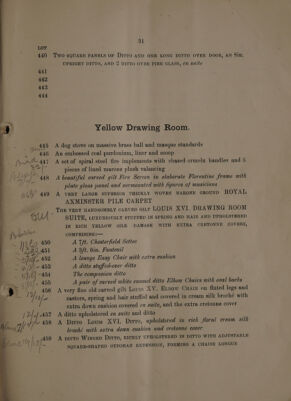 31
LOT
440 TWO SQUARE PANELS OF DITTO AND ONE LONG DITTO OVER DOOR, AN 8IN.
UPRIGHT DITTO, AND 2 DITTO OVER PIER GLASS, en suite
441
442
443
444
Yellow Drawing Room.
445 A dog stove on massive brass ball and masque standards
446 An embossed coal purdonium, liner and scoop
447 A set of spiral steel fire implements with chased ormolu handles and 5
pieces of lined maroon plush valancing
448 A beautiful carved gilt Fire Screen in elaborate Florentine frame with
plate glass panel and surmounted with figures of musicians
449 A VERY LARGE SUPERIOR THICKLY WOVEN MAROON GROUND ROYAL
AXMINSTER PILE CARPET
THE VERY HANDSOMELY CARVED GILT LOUIS XVI. DRAWING ROOM
SUITE, LUXURIOUSLY STUFFED IN SPRING AND HAIR AND UPHOLSTERED
IN RICH YELLOW SILK DAMASK WITH EXTRA CRETONNE COVERS,
COMPRISING:—
450 A 7ft. Chesterfield Settee
451 A 3ft. 6in. Fauteuil
452 A lounge Easy Chair with extra cushion
453 A ditto stuffed-over ditto
454 The companion ditto
455 A pair of carved white enamel ditto Elbow Chairs with oval backs
456 A very fine old carved gilt LOUIS XV. ELBOW CHAIR on fluted legs and
castors, spring and hair stuffed and covered in cream silk broché with
extra down cushion covered en suite, and the extra cretonne cover
457 A ditto upholstered en suite and ditto
458 A DITTO LOUIS XVI. DITTO, upholstered in rich floral cream silk
broché with extra down cushion and cretonne cover
459 A DITTO WINGED DITTO, RICHLY UPHOLSTERED IN DITTO WITH ADJUSTABLE
SQUARE-SHAPED OTTOMAN EXTENSION, FORMING A CHAISE LONGUE